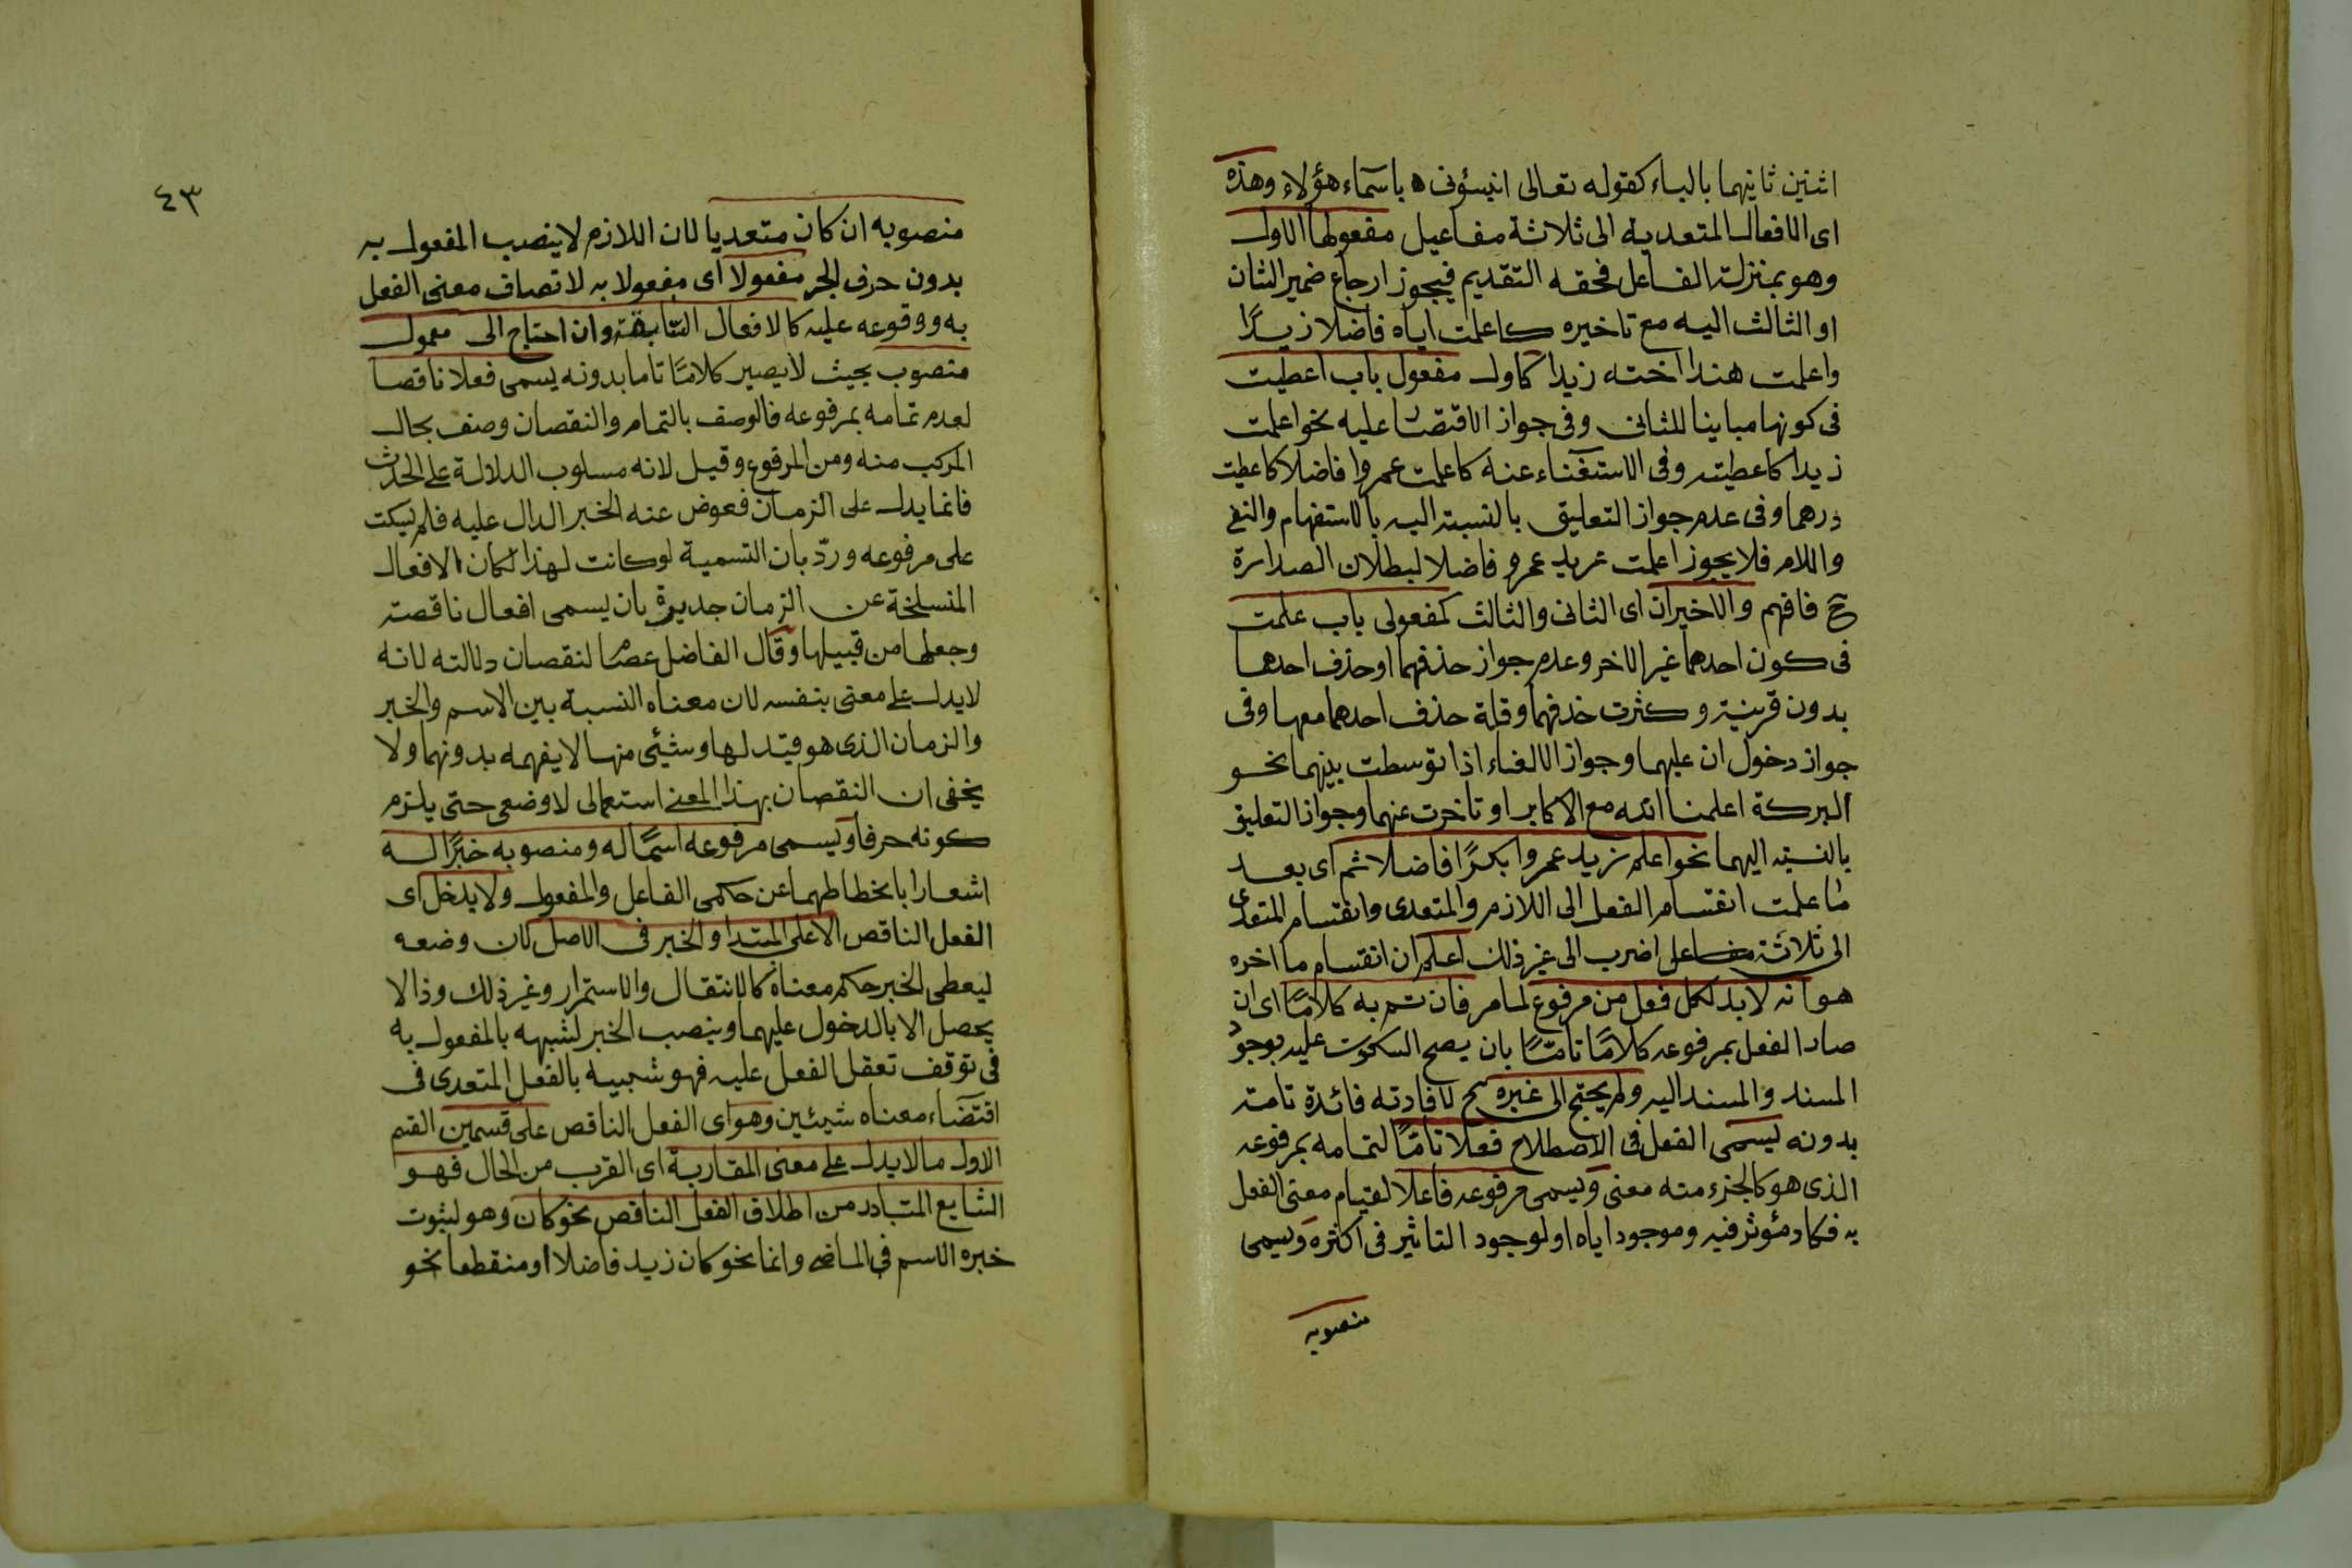 اثنين ثانيهما بالباء كقوله تعالى انبئونى باسماء هؤلاء وهذه
اى الافعال المتعدية الى ثلاثة مفاعيل مفعولها الاول
وهو بمنزلة الفاعل فحقه التقديم فيجوز ارجاع ضمير الثان
او الثالث اليه مع تاخيره كاعلمت اياه فاضلا زيدًا
واعلمت هندا اخته زيدا كاول مفعول باب اعطيت
فى كونها مباينا للثانى وفى جواز الاقتصا عليه نحو اعلمت
زيدا كاعطيته وفى الاستغناء عنه كاعلمت عمروا فاضلا كاعطيت
درهما وفى عدم جواز التعليق بالنسبة اليه بالاستفهام والنفى
واللام فلا يجوز اعلمت عمرو فاضلا لبطلان الصدارة
ح فافهم والاخيران اى الثانى والثالث كمفعولى باب علمت
فى كون احدهما غير الاخر وعدم جواز حذفهما او حذف احدهما
بدون قرينة وكثرت حذفهما وقلة حذف احدهما معها وفى
جواز دخول ان عليهما وجواز الالغاء اذا توسطت بينهما نحو
البركة اعلمنا الله مع الاكابر او تاخرت عنهما وجواز التعليق
بالنسبة اليهما نحو اعلم زيد عمروا بكرًا فاضلا ثم اى بعد
ما علمت انقسام الفعل الى اللازم والمتعدى وانقسام المتعدى
الى ثلاثة على اضرب الى غير ذلك اعلم ان انقسام ما اخره
هو انه لابد لكل فعل من مرفوع لما مر فان تم به كلامًا اى ان
صار الفعل بمرفوعه كلامًا تامًا بان يصح السكوت عليه بوجود
المسند والمسند اليه ولم يحتج الى غيره لافادته فائدة تامة
بدونه يسمى الفعل فى الاصطلاح فعلا تامًا لتمامه بمرفوعه
الذى هو كالجزء منه معنى ويسمى مرفوعه فاعلا لقيام معنى الفعل
به فكاد مئوثر فيه وموجود اياه او لوجود التاثير فى اكثره ويسمى
منصوبه
٤٣
منصوبه ان كان متعديا لان اللازم لا ينصب المفعول به
بدون حرف الجر مفعولا اى مفعولا به لاتصاف معنى الفعل
به ووقوعه عليه كالافعال السابقة وان احتاج الى معمول
منصوب بحيث لا يصير كلامًا تاما بدونه يسمى فعلا ناقصا
لعدم تمامه بمرفوعه فالوصف بالتمام والنقصان وصف بحال
المركب منه ومن المرفوع وقيل لانه مسلوب الدلالة على الحدث
فانما يدل على الزمان فعوض عنه الخبر الدال عليه فلم يسكت
على مرفوعه وردّ بان التسمية لو كانت لهذا لكان الافعال
المنسلخة عن الزمان جديرة بان يسمى افعال ناقصة
وجعلها من قبيلها وقال الفاضل عصام لنقصان دلالته لانه
لا يدل على معنى بنفسه لان معناه النسبة بين الاسم والخبر
والزمان الذى هو قيد لها وشيئى منها لا يفهمه بدونهما ولا
يخفى ان النقصان بهذا المعنى استعمالى لا وضعى حتى يلزم
كونه حرفا ويسمى مرفوعه اسمًا له ومنصوبه خبرًا له
اشعارا بانحطاطهما عن حكمى الفاعل والمفعول ولا يدخل اى
الفعل الناقص الا على المبتدا والخبر فى الاصل لان وضعه
ليعطى الخبر حكم معناه كالانتقال والاستمرار وغير ذلك وذا لا
يحصل الا بالدخول عليهما وينصب الخبر لشبهه بالمفعول به
فى توقف تعقل الفعل عليه فهو شبيه بالفعل المتعدى فى
اقتضاء معناه شيئين وهو اى الفعل الناقص على قسمين القسم
الاول ما لا يدل على معنى المقاربة اى القرب من الحال فهو
الشايع المتبادر من اطلاق الفعل الناقص نحو كان وهو لثبوت
خبره الاسم فى الماضى وانما نحو كان زيد فاضلا او منقطعا نحو